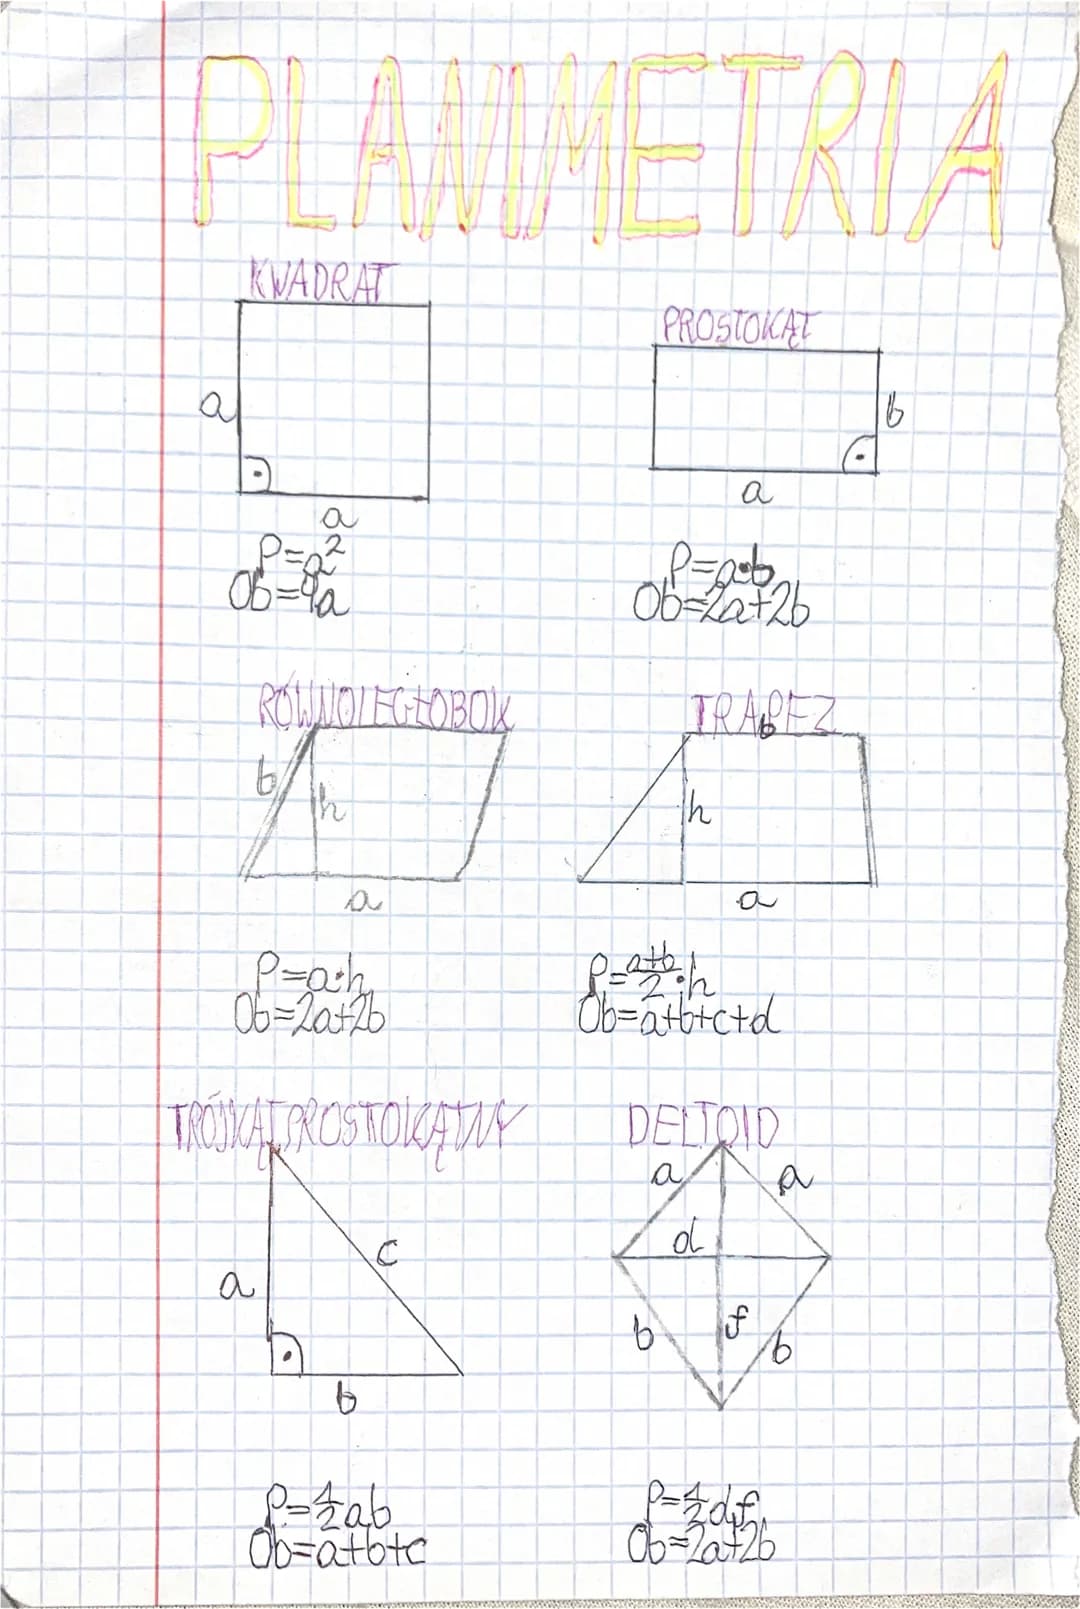 PLANIMETRIA
KWADRAT
a
a
P=a²
Ob=4a
PROSTOKĄT
b
a
P=a•b
Ob=2a+2b
RÓWNOLEGŁOBOK
b
h
a
P=a·h
Ob=2a+2b
TRAPEZ
b
h
a
P=\frac{a+b}{2}·h
Ob=a+b+c+d
TRÓJKĄT PROSTOKĄTNY
c
a
b
P=\frac{1}{2}ab
Ob=a+b+c
DELTOID
a a
d
f
b b
P=\frac{1}{2}d·f
Ob=2a+2b